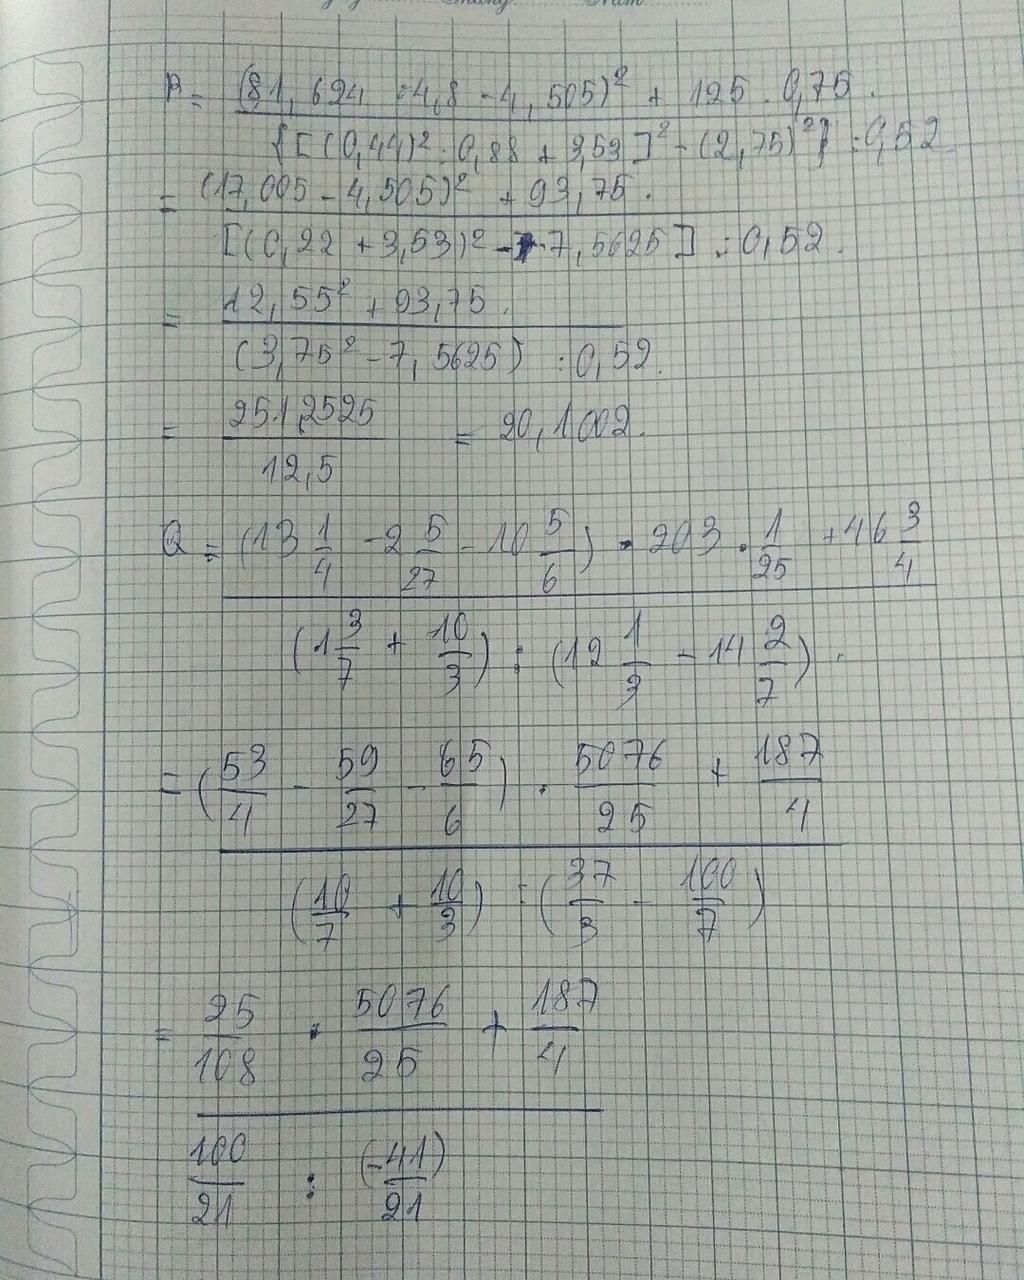 P = (81,624 : 4,8 - 4,505)² + 125 . 0,75 .
{[(0,44)² : 0,88 + 3,53]² - (2,75)²} : 0,52
= (17,005 - 4,505)² + 93,75 .
[(0,22 + 3,53)² - 7,5625] : 0,52 .
= 12,55² + 93,75 .
(3,75² - 7,5625) : 0,52 .
= 251,2525 / 12,5 = 20,1002 .
Q = (13 1/4 - 2 5/27 - 10 5/6) . 203 . 1/25 + 46 3/4
(1 3/7 + 10/3) : (12 1/3 - 14 2/7) .
= (53/4 - 59/27 - 65/6) . 5076/25 + 187/4
(10/7 + 10/3) : (37/3 - 100/7)
= 25/108 . 5076/25 + 187/4
100/21 : (-41)/21